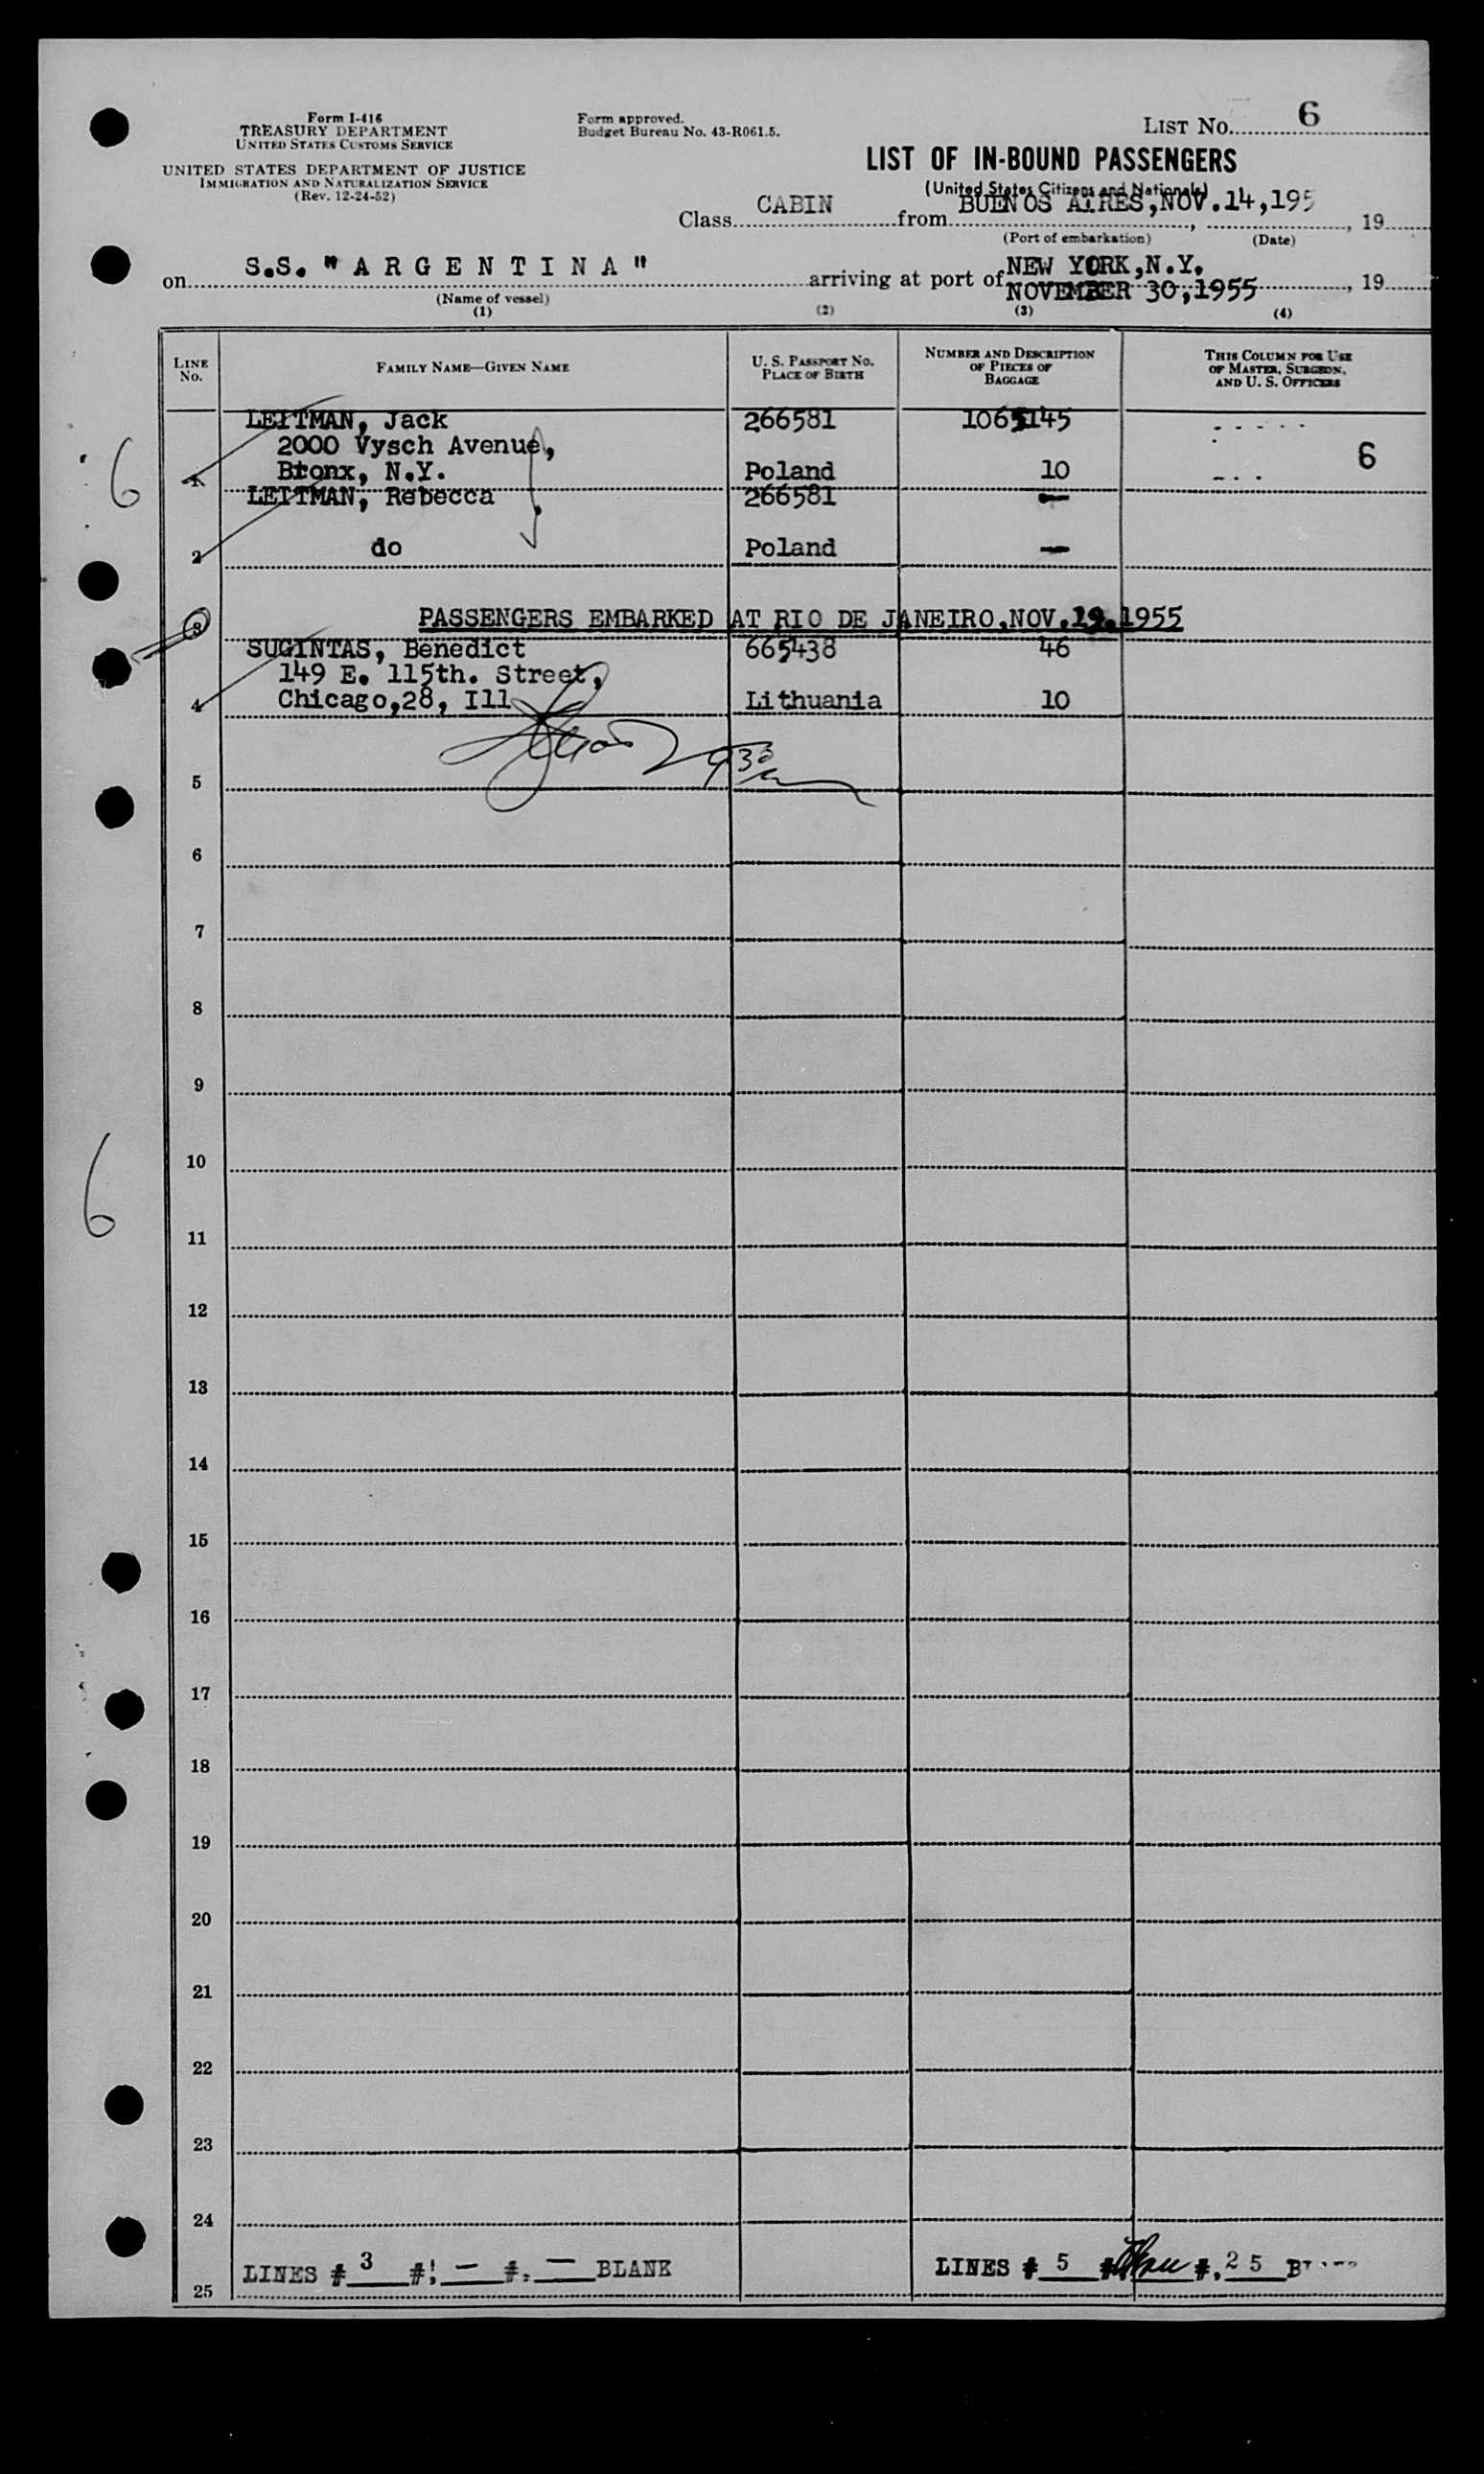 Form I-416
TREASURY DEPARTMENT
UNITED STATES CUSTOMS SERVICE
UNITED STATES DEPARTMENT OF JUSTICE
IMMIGRATION AND NATURALIZATION SERVICE
(Rev. 12-24-52)
Form approved.
Budget Bureau No. 43-R061.5.
LIST No. 6
LIST OF IN-BOUND PASSENGERS
(United States Citizens and Nationals)
Class CABIN from BUENOS AIRES, NOV.14,195 , 19
(Port of embarkation) (Date)
on S.S. "ARGENTINA" arriving at port of NEW YORK, N.Y.
NOVEMBER 30,1955 , 19
(Name of vessel)
(1) (2) (3) (4)
LINE No. FAMILY NAME—GIVEN NAME U. S. PASSPORT NO. PLACE OF BIRTH NUMBER AND DESCRIPTION OF PIECES OF BAGGAGE THIS COLUMN FOR USE OF MASTER, SURGEON, AND U. S. OFFICERS
LEITMAN, Jack 266581 1065145
2000 Vysch Avenue,
6 1 Bronx, N.Y. Poland 10 6
LEITMAN, Rebecca 266581 —
2 do Poland —
3 PASSENGERS EMBARKED AT RIO DE JANEIRO, NOV.19.1955
SUGINTAS, Benedict 665438 46
149 E. 115th. Street,
4 Chicago,28, Ill Lithuania 10
5
6
7
8
9
10
6
11
12
13
14
15
16
17
18
19
20
21
22
23
24
LINES # 3 #! — #. — BLANK LINES # 5 # thru #, 25
25